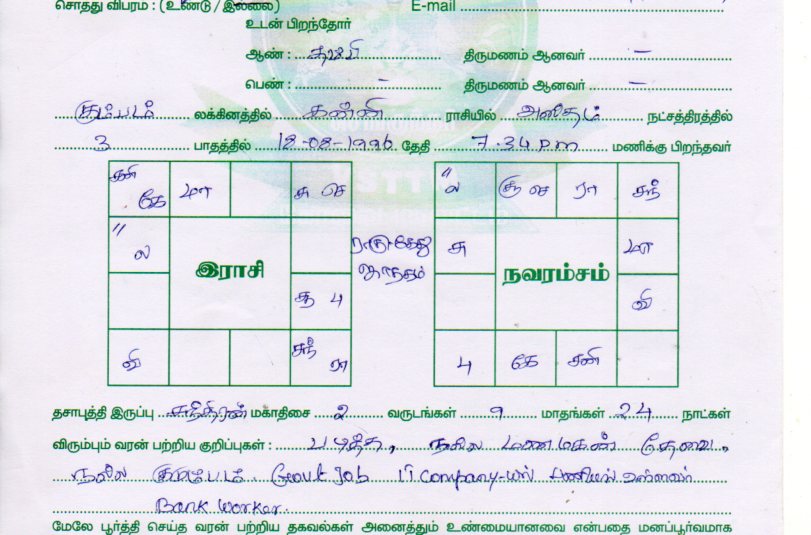 சொத்து விபரம் : (உண்டு / இல்லை) E-mail
உடன் பிறந்தோர்
ஆண் : தம்பி திருமணம் ஆனவர் –
பெண் : – திருமணம் ஆனவர் –
கும்பம் லக்கினத்தில் கன்னி ராசியில் அஸ்தம் நட்சத்திரத்தில்
3 பாதத்தில் 18-08-1996 தேதி 7.34 P.m மணிக்கு பிறந்தவர்
சனி கே மா சு செ
" ல
இராசி
சூ பு
வி சந் ரா
ராகு-கேது ஜாதகம்
" ல சூ செ ரா சந்
சு மா
நவரம்சம்
வி
பு கே சனி
தசாபுத்தி இருப்பு சந்திரன் மகாதிசை 2 வருடங்கள் 9 மாதங்கள் 24 நாட்கள்
விரும்பும் வரன் பற்றிய குறிப்புகள் : படித்த, நல்ல மணமகன் தேவை,
நல்ல குடும்பம். Govt Job IT Company-யில் பணியில் உள்ளவர்
Bank worker.
மேலே பூர்த்தி செய்த வரன் பற்றிய தகவல்கள் அனைத்தும் உண்மையானவை என்பதை மனப்பூர்வமாக